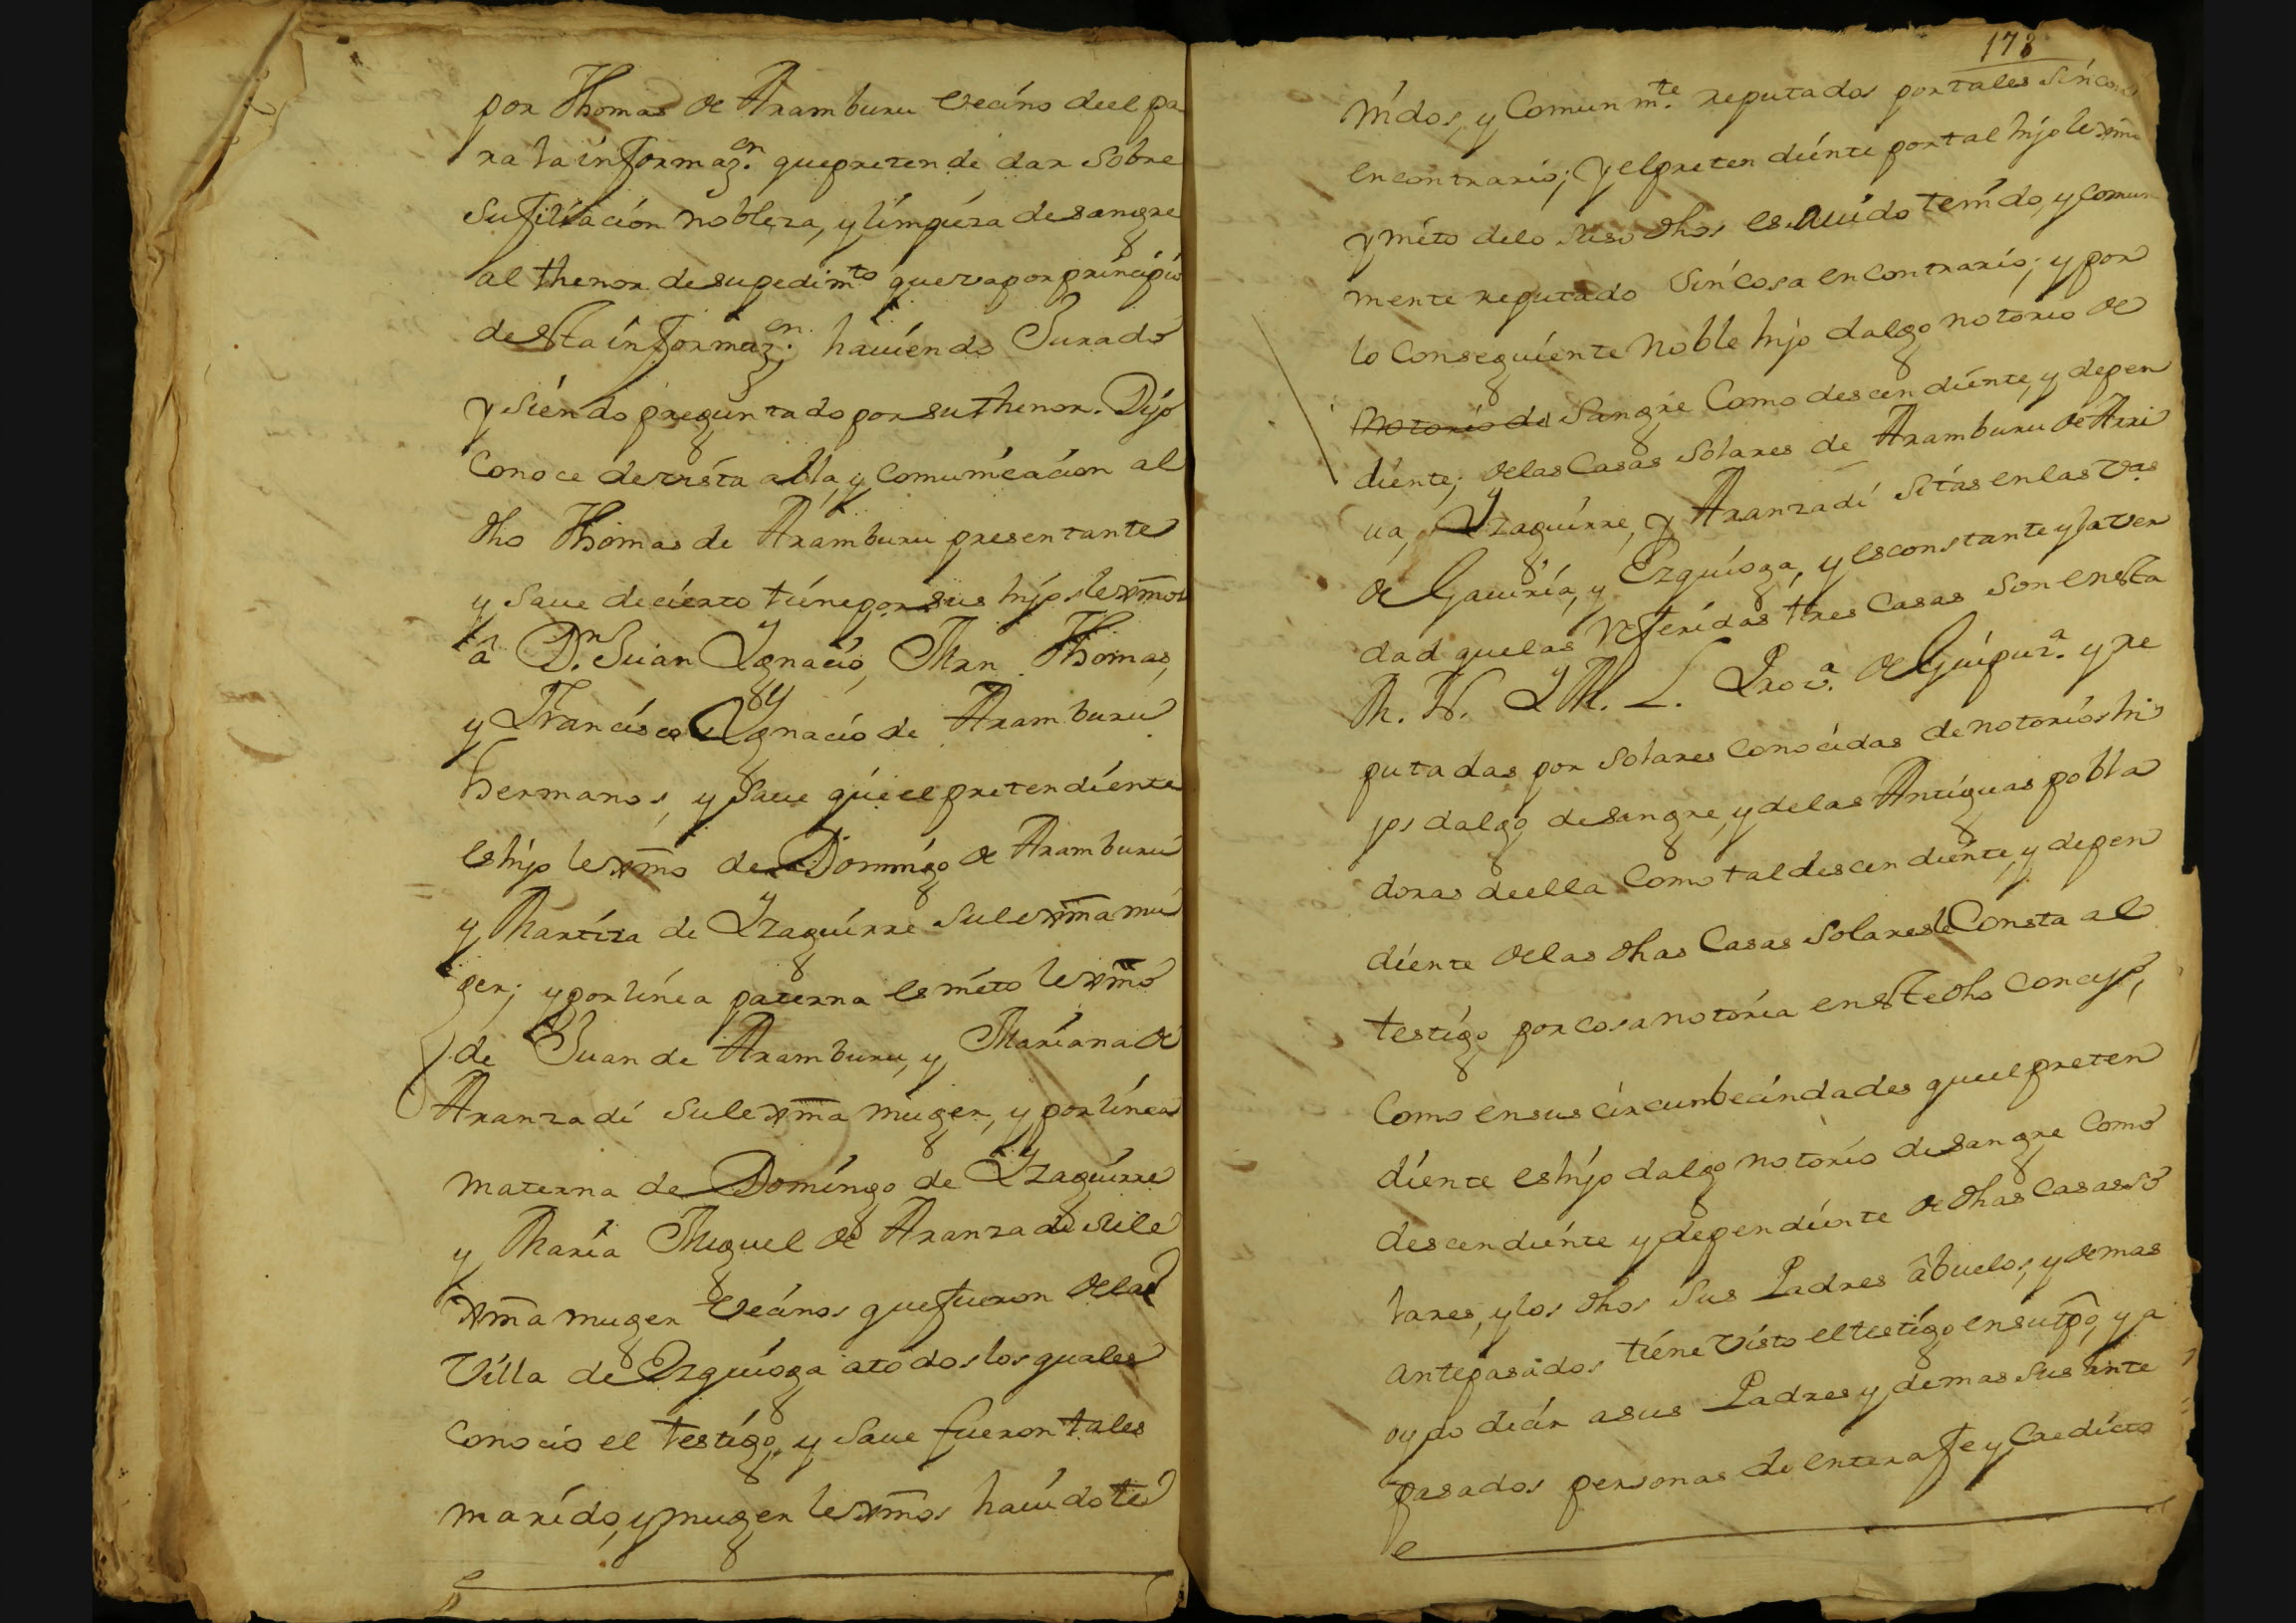 por Thomas de Aramburu vecino deel pa
ra la informaz.on que pretende dar sobre
su filiacion nobleza, y limpieza de sangre
al thenor de su pedim.to que va por principio
desta informaz.on haviendo Jurado
y siendo preguntado por su thenor. Dijo
conoce de vista abla, y comunicacion al
dho Thomas de Aramburu presentante
y save de cierto tiene por sus hijos lexmos
â D.n Juan Ygnacio, Mrn Thomas,
y Francisco Ygnacio de Aramburu
hermanos, y save que el pretendiente
es hijo lexmo de Domingo de Aramburu
y Mariza de Yzaguirre su lexma mu
ger; y por linea paterna es nieto lexmo
de Juan de Aramburu, y Mariana de
Aranzadi su lexma muger, y por linea
materna de Domingo de Yzaguirre
y Maria Miguel de Aranzadi su le
xma muger vecinos que fueron de la
Villa de Ezquioga a todos los quales
conocio el testigo, y save fueron tales
marido, y muger lexmos havidos te
178
nidos, y comunm.te reputados por tales sin cosa
en contrario; y el pretendiente por tal hijo lexmo
y nieto de lo suso dhos es avido tenido, y comun
mente reputado sin cosa en contrario; y por
lo conseguiente noble hijo dalgo notorio de
notorio de sangre como descendiente, y depen
diente; de las Casas solares de Aramburu de Arri
va, Yzaguirre, y Aranzadi sitas en las v.as
de Gaviria, y Ezquioga, y es constante y la ver
dad que las referidas tres Casas son en esta
M. N. Y M. L. Prov.a de Guipuz.a y re
putadas por solares conocidas de notorios hi
jos dalgo de sangre, y de las Antiguas pobla
doras de ella como tal descendiente, y depen
diente de las dhas Casas solares le Consta al
testigo por cosa notoria en este dho concejo,
como en sus circumbecindades que el preten
diente es hijo dalgo notorio de sangre como
descendiente y dependiente de dhas casas so
lares, y los dhos sus Padres abuelos, y demas
antepasados tiene visto el testigo en su tpo, y a
oydo decir a sus Padres y demas sus ante
pasados personas de entera fe y credicto